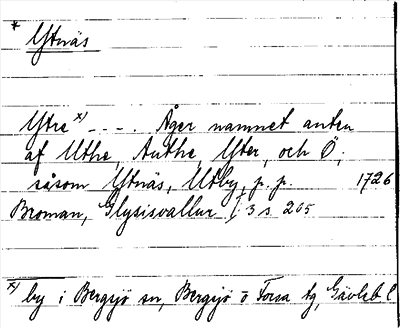 * Ytnäs
Ytre x) – – – . Äger namnet anten
af Uthe, Authe, Yter, och Ö;
såsom Ytnäs, Utby, p. p. 1726
Broman, Glysisvallur 3 s 205
x) by i Bergsjö sn, Bergsjö o Forsa tg, Gävleb l